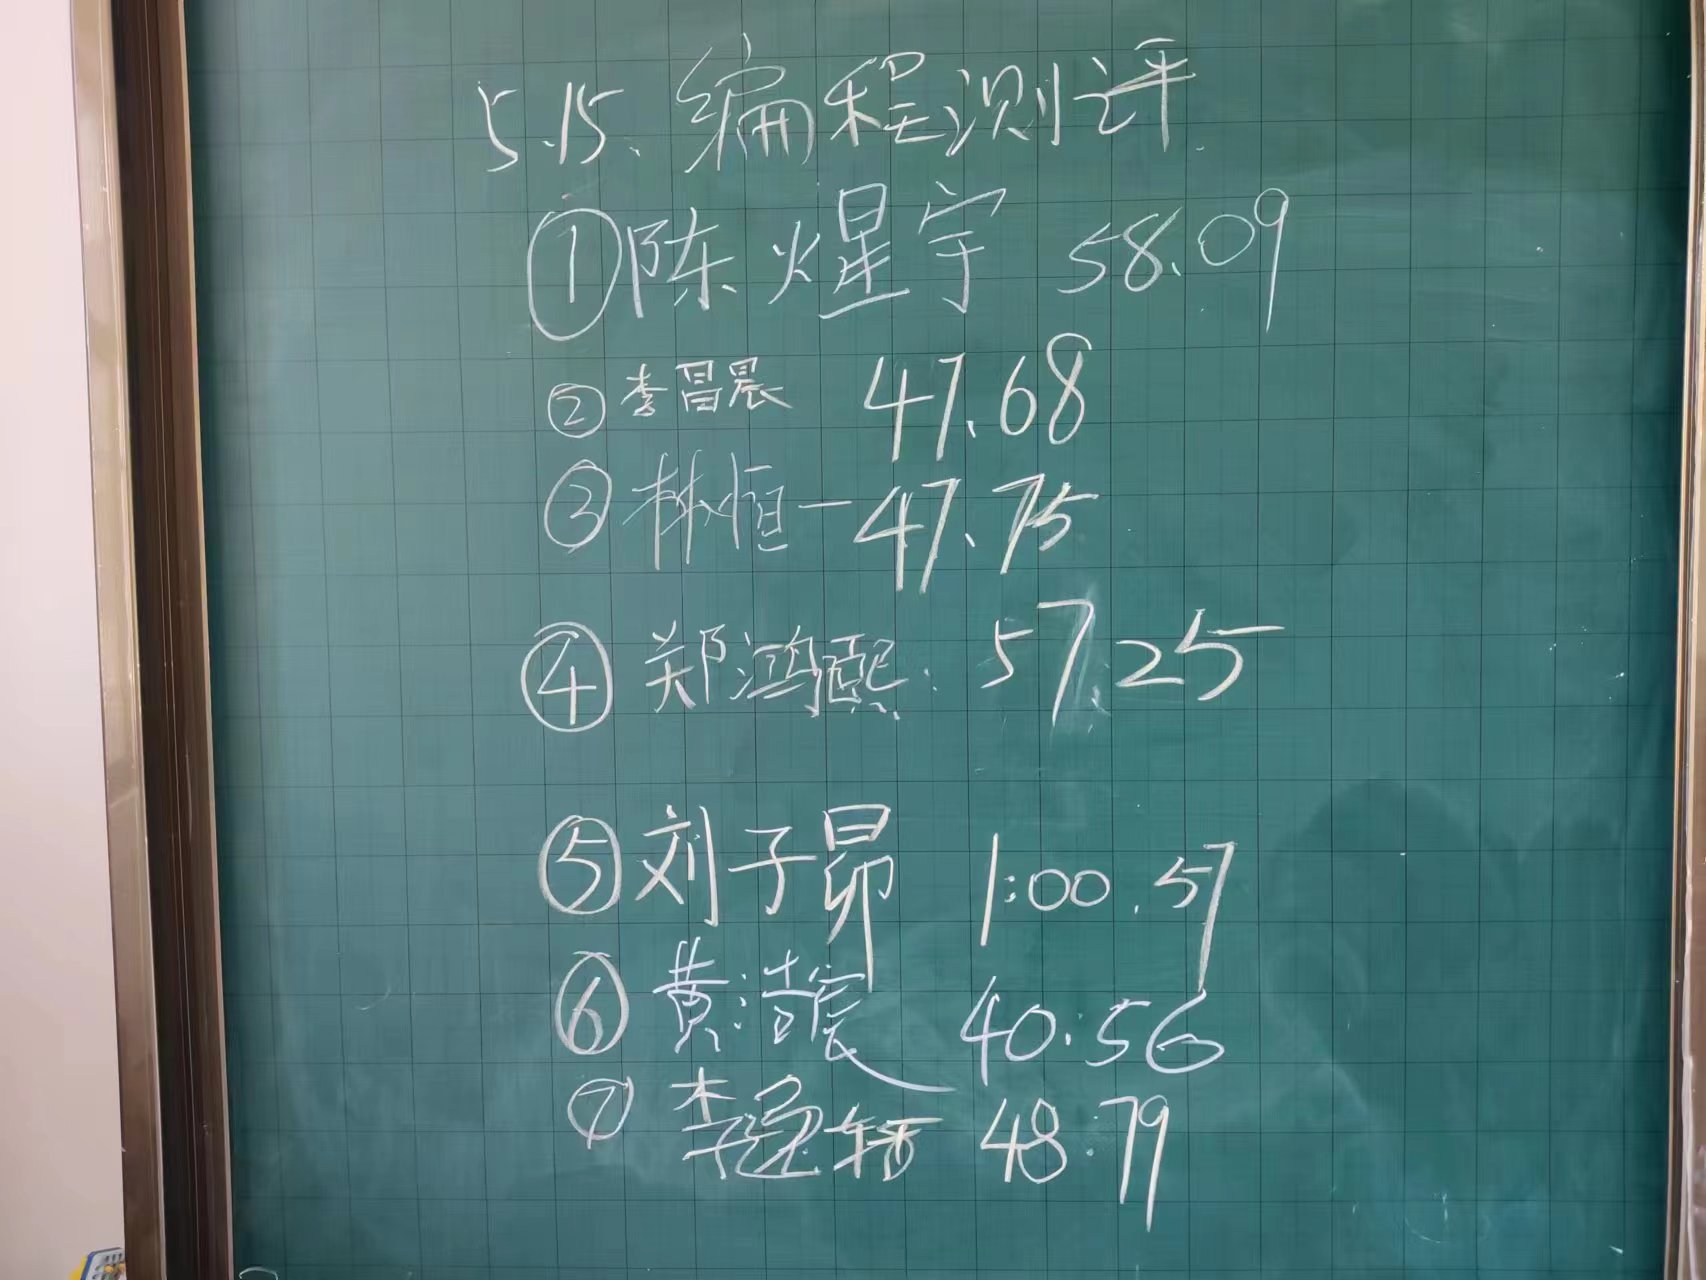 5.15.编程测评.
①陈煋宇 58.09
②李昌晨 47.68
③林恒一 47.75
④郑鸿熙. 57.25
⑤刘子昴 1:00.57
⑥黄浩宸 40.56
⑦李 48.79